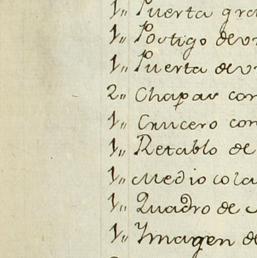 1,, Puerta gra
1,, Postigo de v
1,, Puerta de v
2,, Chapas con
1,, Crucero con
1,, Retablo de
1,, Medio cola
1,, Quadro de
1,, Ymagen de